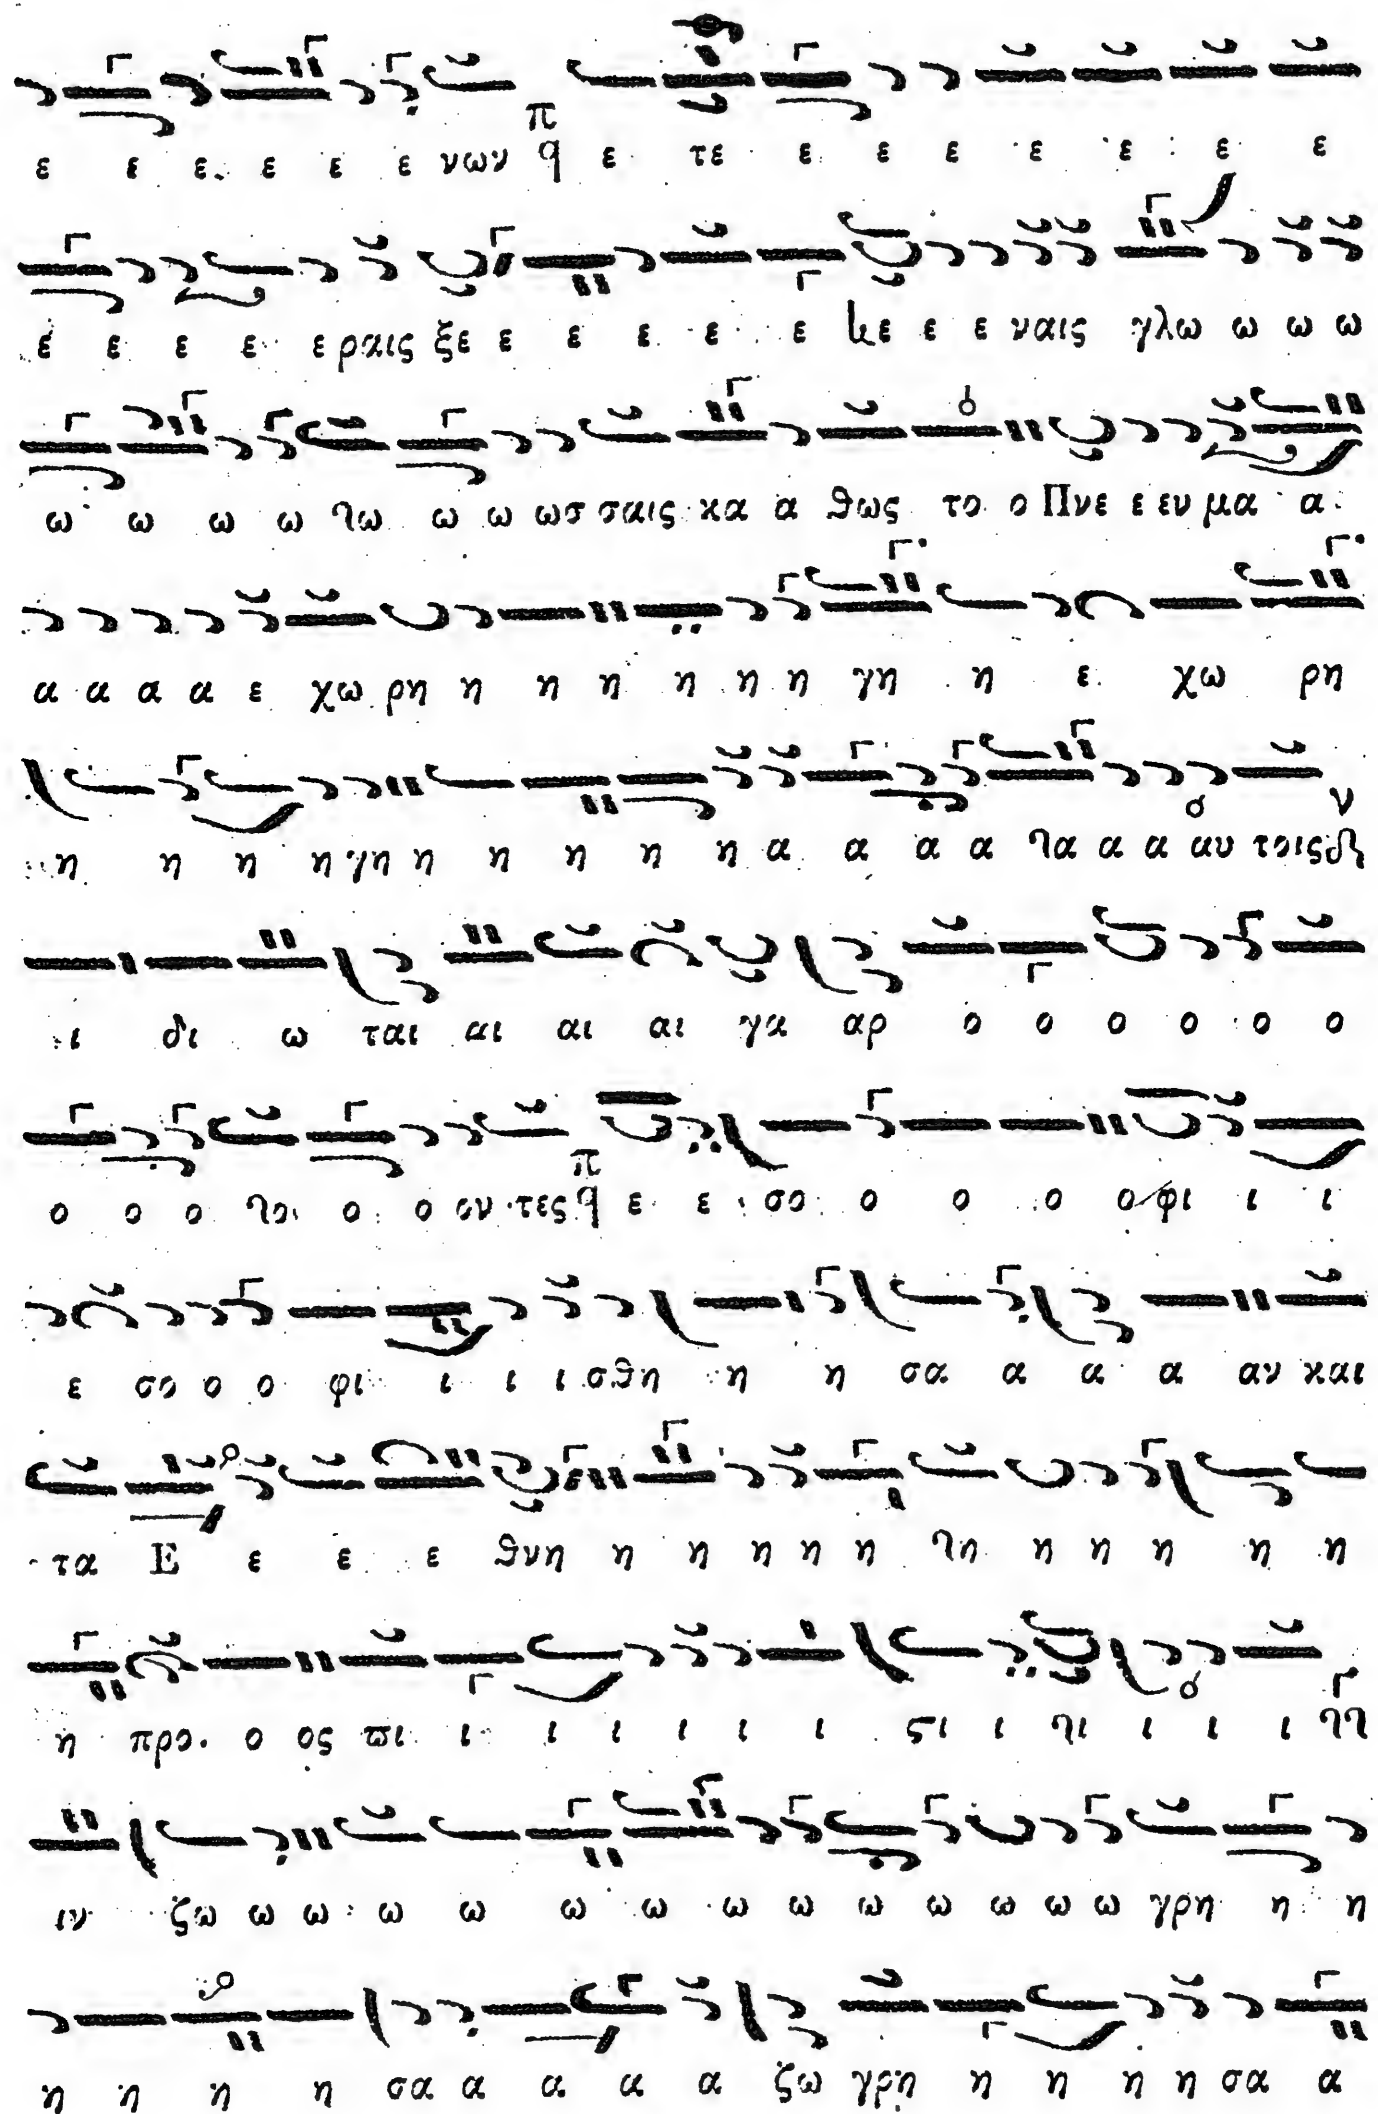 ε ε ε ε ε ε νων π q ε τε ε ε ε ε ε ε ε
ε ε ε ε εραις ξε ε ε ε ε ε ε ε ε ναις γλω ω ω ω
ω ω ω ω γω ω ω ωσ σαις κα α θως το ο Πνε ε ευ μα α
α α α α ε χω ρη η η η η η η γη η ε χω ρη
η η η η γη η η η η η α α α α γα α α αυ τοις ν
ι δι ω ται αι αι αι γα αρ ο ο ο ο ο ο
ο ο ο γο ο ο ον τες π q ε ε σο ο ο ο ο φι ι ι
ε σο ο ο φι ι ι ι σθη η η σα α α α αν και
τα Ε ε ε ε θνη η η η η η γη η η η η η
η προ ο ος πι ι ι ι ι ι ι ςι ι γι ι ι ι
ιν ζω ω ω ω ω ω ω ω ω ω ω ω ω ω γρη η η
η η η η σα α α α α ζω γρη η η η η σα α